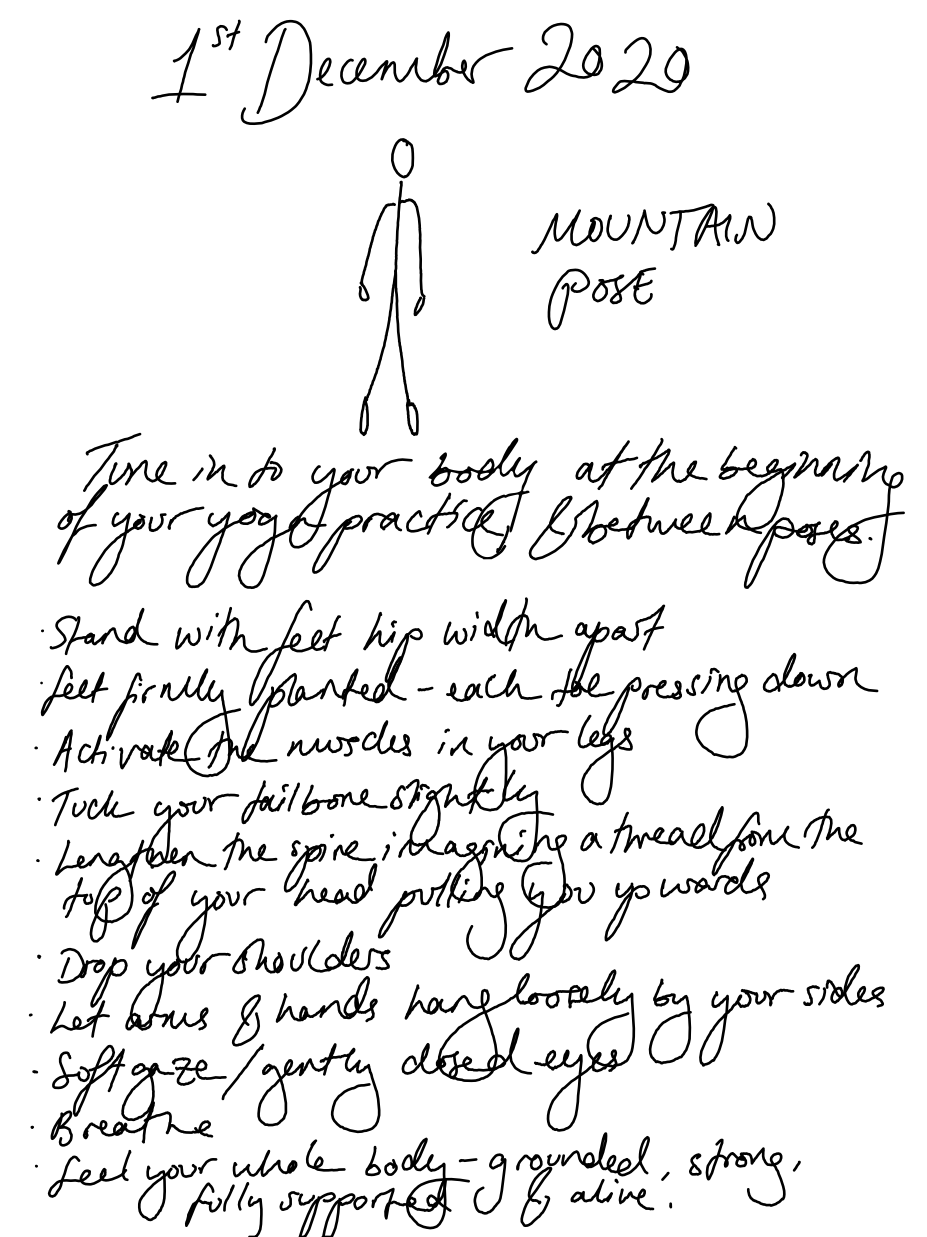 1st December 2020
MOUNTAIN
POSE
Tune in to your body at the beginning
of your yoga practice, & between poses.
· Stand with feet hip width apart
· feet firmly planted - each toe pressing down
· Activate the muscles in your legs
· Tuck your tailbone slightly
· Lengthen the spine imagining a thread from the
top of your head pulling you upwards
· Drop your shoulders
· Let arms & hands hang loosely by your sides
· Soft gaze / gently closed eyes
· Breathe
· feel your whole body - grounded, strong,
fully supported & alive.